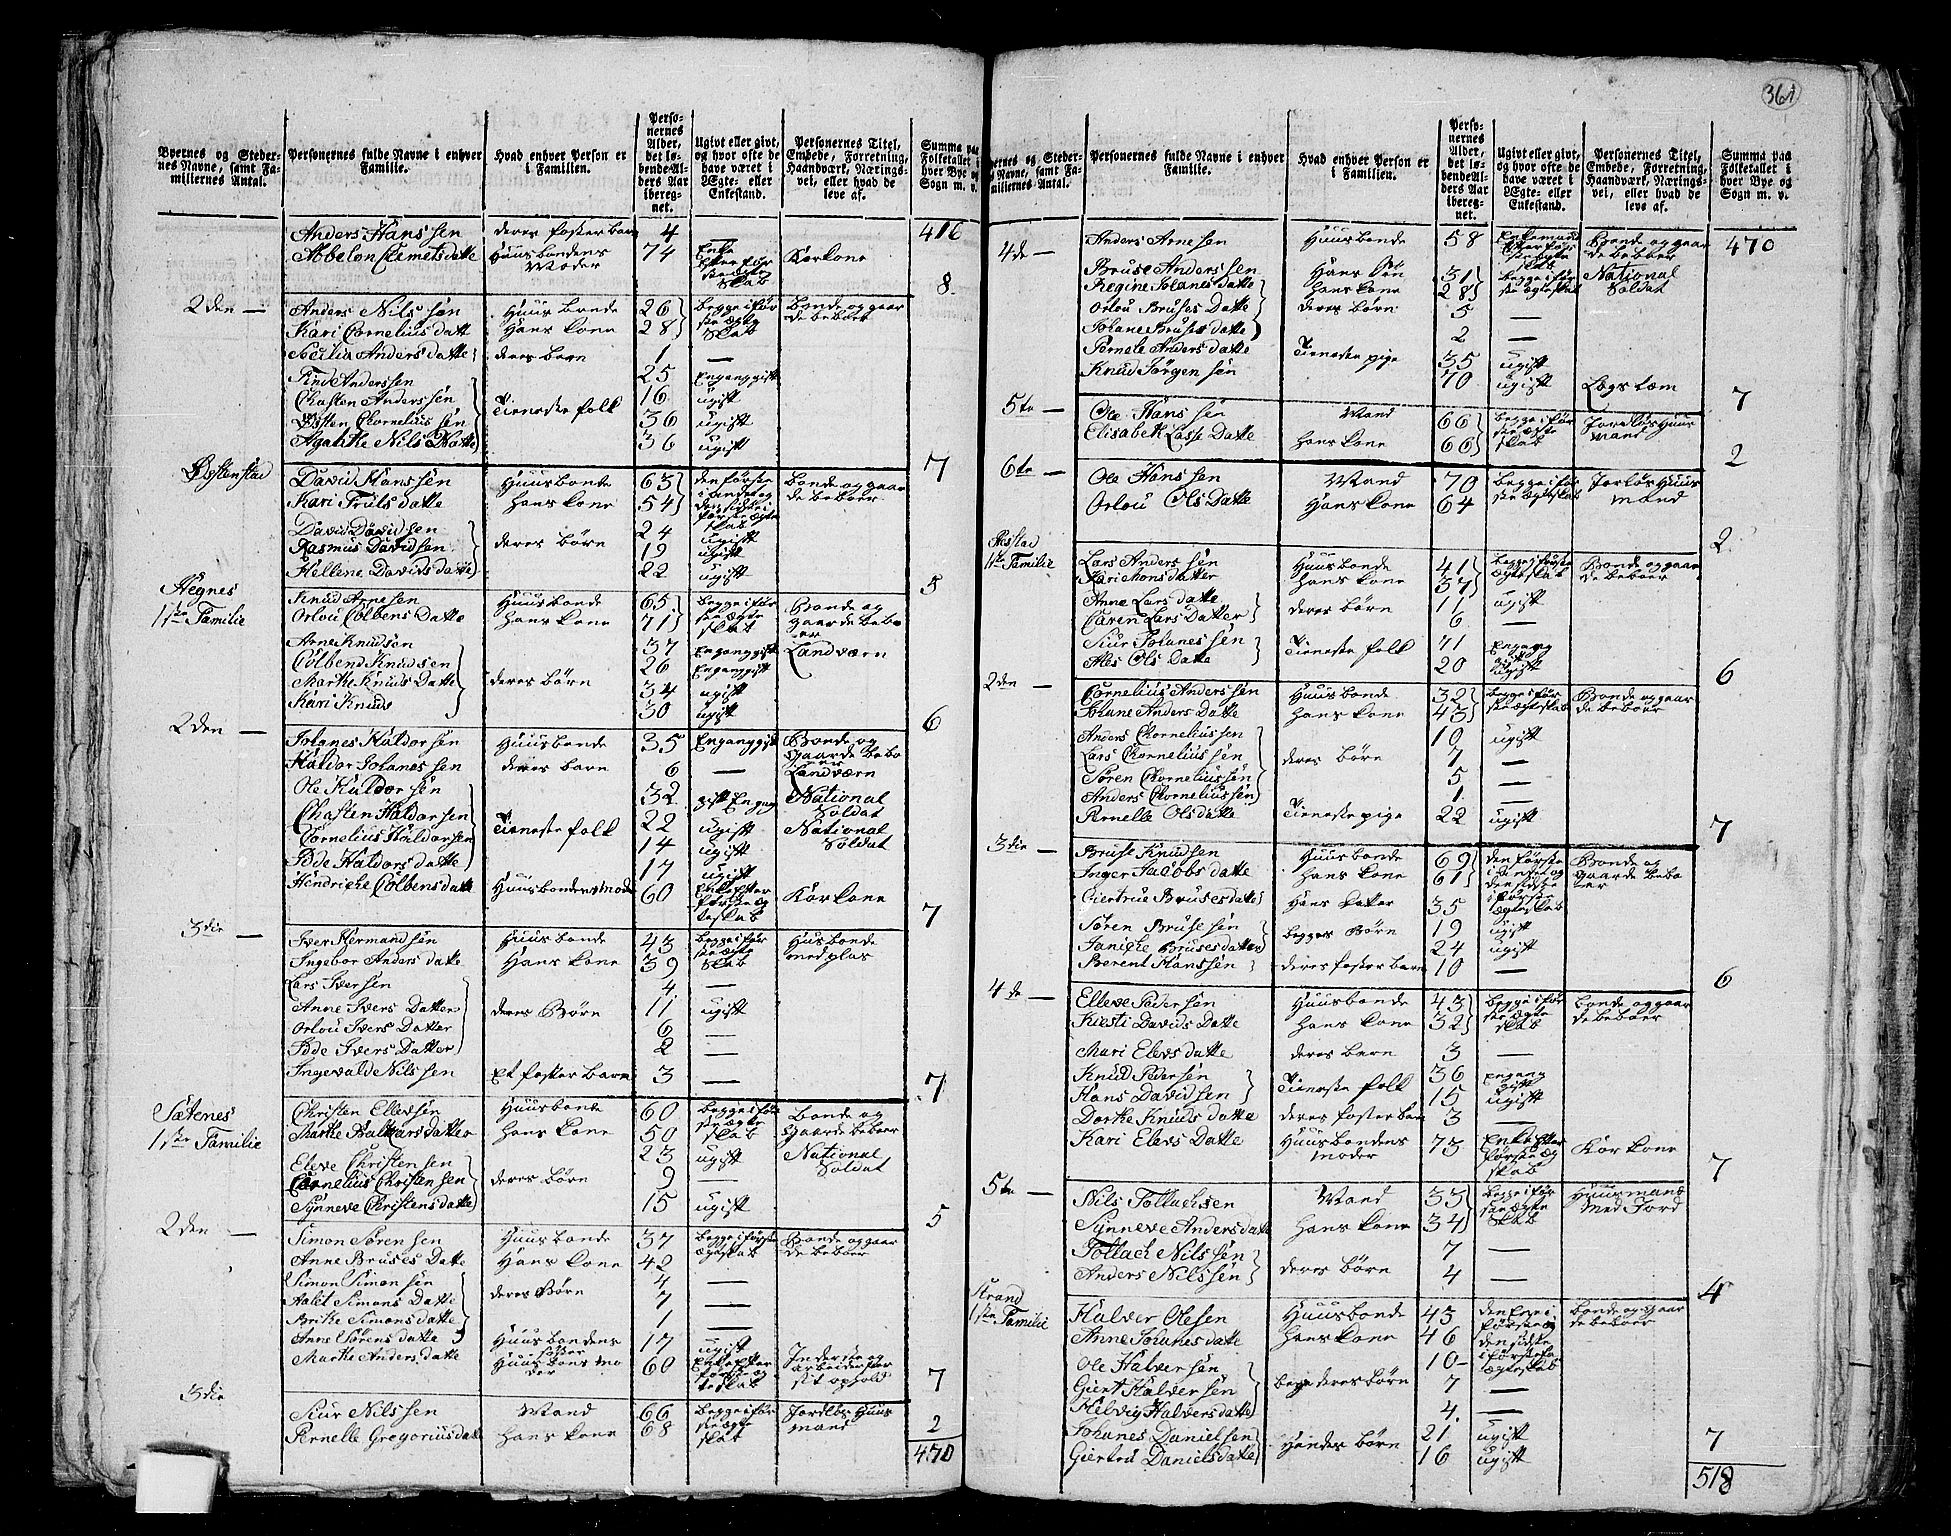 361
Byernes og Steder-
nes Navne, samt Fa-
miliernes Antal.
Personernes fulde Navne i enhver
Familie.
Hvad enhver Person er
i Familien.
Perso-
nernes
Alder,
det lø-
bende Al-
ders Aar
ibereg-
net.
Ugivt eller givt,
og hvor ofte de
have været i
Ægte- eller
Enkestand.
Personernes Titel,
Embede, Forretning,
Haandværk, Nærings-
vei, eller hvad de
leve af.
Summa paa
Folketallet i
hver Bye og
Sogn m. v.
Anders Hanssen deres foster barn 4 416
Abbelon Clemetsdatte Huusbondens Moder 74 Enke Efter før ste ægte skab Kårkone
8
2den — Anders Nilssen Huusbonde 26 begge i før ste ægte skab Bonde og gaar de beboer
Kari Cornelius datte Hans kone 28
Secilia Anders datte deres barn 1 —
Find Anderssen 25 Engang gift
Chasten Anderssen Tieneste folk 16 ugift
Østen Cornelius sen 36 ugift
Agathe Nils Datte 36 ugift
7
Østenstad David Hanssen Huusbonde 63 den første i andet og den sidste i første ægte skab Bonde og gaar de beboer
Kari Truls datte Hans kone 54
David Davidsen 24 ugift
Rasmus Davidsen deres børn 19 ugift
Hellene Davids datte 22 ugift
5
Hegnes
1ste Familie Knud Arnesen Huusbonde 65 begge i før ste ægte skab Bonde og gaarde bebo er
Orlou Colbens Datte Hans kone 71
Arne Knudsen 37 Engang gift Landværn
Colbend Knudsen 26 Engang gift
Marthe Knuds Datte deres børn 34 ugift
Kari Knuds 30 ugift
6
2den — Johanes Haldorsen Huusbonde 35 Engang gift Bonde og Gaarde bebo er Landværn
Haldor Johanessen deres barn 6 —
Ole Haldorsen 32 gift Engang National Soldat
Chasten Haldorsen Tieneste folk 22 ugift National Soldat
Cornelius Haldorsen 14 ugift
Bode Haldors datte 17 ugift
Hendriche Colbens datte Huusbondens mode 60 Enke Efter første æg teskab Kårkone
7
3die — Iver Hermandsen Huusbonde 43 begge i før ste ægte skab Husbonde med plas
Ingebor Anders datte Hans kone 39
Lars Iversen 4 —
Anne Ivers Datter deres Børn 11 ugift
Orlou Ivers Datter 6 —
Bode Ivers Datter 2 —
Ingevalde Nilssen Et foster barn 3 —
7
Sætenes
1ste Familie Christen Ellevsen Huusbonde 60 begge i før ste ægte skab Bonde og Gaarde beboer
Marthe Haldorsdatter Hans kone 50
Eleve Christensen 23 ugift National Soldat
Cornelius Christensen deres børn 9 —
Synneve Christensdatte 15 ugift
5
2den — Simon Sørensen Huusbonde 37 begge i første ægteskab Bonde og gaar de beboer
Anne Bruses Datte Hans kone 42
Simon Simonsen 4 —
Aalet Simons Datte deres Børn 7 —
Brithe Simons datte 1 —
Anne Sørens datte Huusbondens søster 17 ugift
Marthe Anders datte Huusbons mo der 60 Enke efter første æg teskab Inderste og arbeider for sit ophold
7
3die Siur Nilssen Mand 66 begge i før ste ægte skab Jordløs Huus mand
Pernelle Gregorius datte Hans kone 68
2
470
Byernes og Steder-
nes Navne, samt Fa-
miliernes Antal.
Personernes fulde Navne i enhver
Familie.
Hvad enhver Person er
i Familien.
Perso-
nernes
Alder,
det lø-
bende Al-
ders Aar
ibereg-
net.
Ugivt eller givt,
og hvor ofte de
have været i
Ægte- eller
Enkestand.
Personernes Titel,
Embede, Forretning,
Haandværk, Nærings-
vei, eller hvad de
leve af.
Summa paa
Folketallet i
hver Bye og
Sogn m. v.
4de — Anders Arnesen Huusbonde 58 Enkemand Efter første ægte skab Bonde og gaar de beboer 470
Bruse Anderssen Hans Søn 31 begge i før ste ægteskab National Soldat
Regine Johanes datte hans kone 28
Orlou Bruses Datte deres børn 5 —
Johane Bruses datte 2 —
Pernele Anders datte Tieneste pige 35 ugift
Knud Jørgensen 70 ugift Lægslem
7
5te — Ole Hanssen Mand 66 begge i før ste ægte skab Jordløs Huus mand
Elisabeth Lasse Datte hans kone 66
2
6te — Ole Hanssen Mand 70 begge i før ste ægteskab Jorløs Huus mand
Orlou Ols Datte Hans kone 64
2
1ste Familie Lars Anderssen Huusbonde 41 begge i første ægteskab Bonde og gaar de beboer
Kari Monsdatter Hans kone 37
Anne Lars datte deres børn 11 ugift
Caren Lars Datter 6 —
Siur Johanessen Tieneste folk 71 Engang gift
Ales Ols Datte 20 ugift
6
2den — Cornelius Anderssen Huusbonde 32 begge i før ste ægteskab Bonde og gaar de beboer
Johane Anders Datte Hans kone 43
Anders Chorneliussen 10 ugift
Lars Chorneliussen deres børn 7 —
Søren Chorneliussen 5 —
Anders Chorneliussen 1 —
Pernelle Olsdatte Tieneste pige 22 ugift
7
3die — Bruse Knudsen Huusbonde 69 den første i andet og den sidste i første ægteskab Bonde og gaarde bebo er
Inger Jacobs datte Hans kone 61
Giertrue Bruses datte Hans datter 35 ugift
Søren Brusesen begges Børn 19 ugift
Janiche Bruses datter 24 ugift
Berent Hanssen deres foster barn 10 —
6
4de — Elleve Pedersen Huusbonde 43 begge i før ste ægte skab bonde og gaar de beboer
Kiersti Davids Datte Hans kone 32
Mari Elevs datte deres barn 3 —
Knud Pedersen Tieneste folk 36 Engang gift
Hans Davidsen 15 ugift
Dorthe Knuds datte deres foster barn 3 —
Kari Elevs Datte Huusbondens moder 73 Enke Efter første æg skab Kårkone
7
5te — Nils Tollachsen Mand 33 begge i før ste ægte skab Huusmand med Jord
Synneve Anders datte Hans kone 34
Tollach Nilssen deres børn 7 —
Anders Nilssen 4 —
4
Strand
1ste Familie Halver Olesen Huusbonde 43 den Ene i første og den sidste i første ægteskab bonde og gaar de beboer
Anne Johanes datte Hans kone 46
Ole Halversen 10 —
Giert Halversen bege deres børn 7 —
Helvig Halvers datte 4 —
Johanes Danielsen Hendes børn 21 ugift
Giertru Daniels datte 16 ugift
7
518